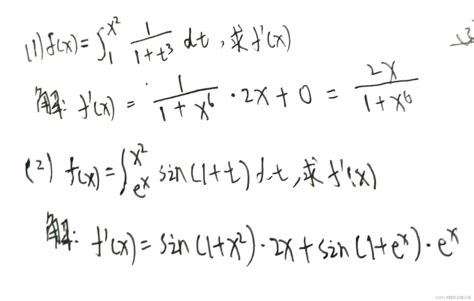 (1) f(x)=∫₁^{x²} 1/(1+t³) dt ,求f'(x)
解: f'(x) = 1/(1+x⁶) · 2x + 0 = 2x/(1+x⁶)
(2) f(x)=∫_{eˣ}^{x²} sin(1+t) dt,求f'(x)
解: f'(x)=sin(1+x²)·2x+sin(1+eˣ)·eˣ